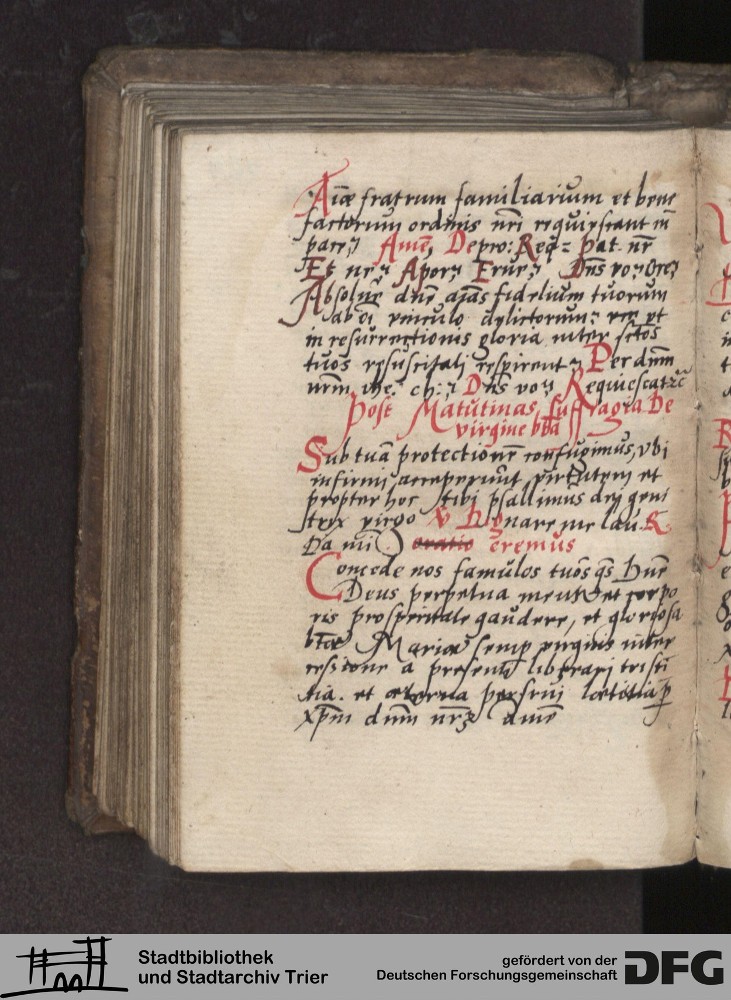 Aīæ fratrum familiarium et bene
factorum ordinis nr̄i requiescant in
pace; Amē, De pro: Req: Pat. nr̄
Et ne; A por; Erue; Dn̄s vo; Ore;
Absolue dn̄e aīas fidelium tuorum
ab oī vinculo delictorum; ut
in resurrectionis gloria inter sc̄tos
tuos resuscitati respirent; Per dnm̄
nrm̄ ihe: ch:; Dn̄s vo; Requiescāt
Post Matutinas suffragia De
virgine bt̄a
Sub tuā protectionē confugimus, vbi
infirmi acceperunt virtutem et
propter hoc tibi psallimus dei geni
trix virgo v Dignare me lau. R
Da mi. oratio oremus
Concede nos famulos tuos qs Dn̄e
Deus perpetua mentis et corpo
ris prosperitate gaudere, et gloriosa
bt̄æ Mariæ semp virginis inter
cessione a presenti liberari tristi
tia. et æterna perfrui lætitia p
xp̄m dnm̄ nr̄; amē
Stadtbibliothek
und Stadtarchiv Trier
gefördert von der
Deutschen Forschungsgemeinschaft
DFG